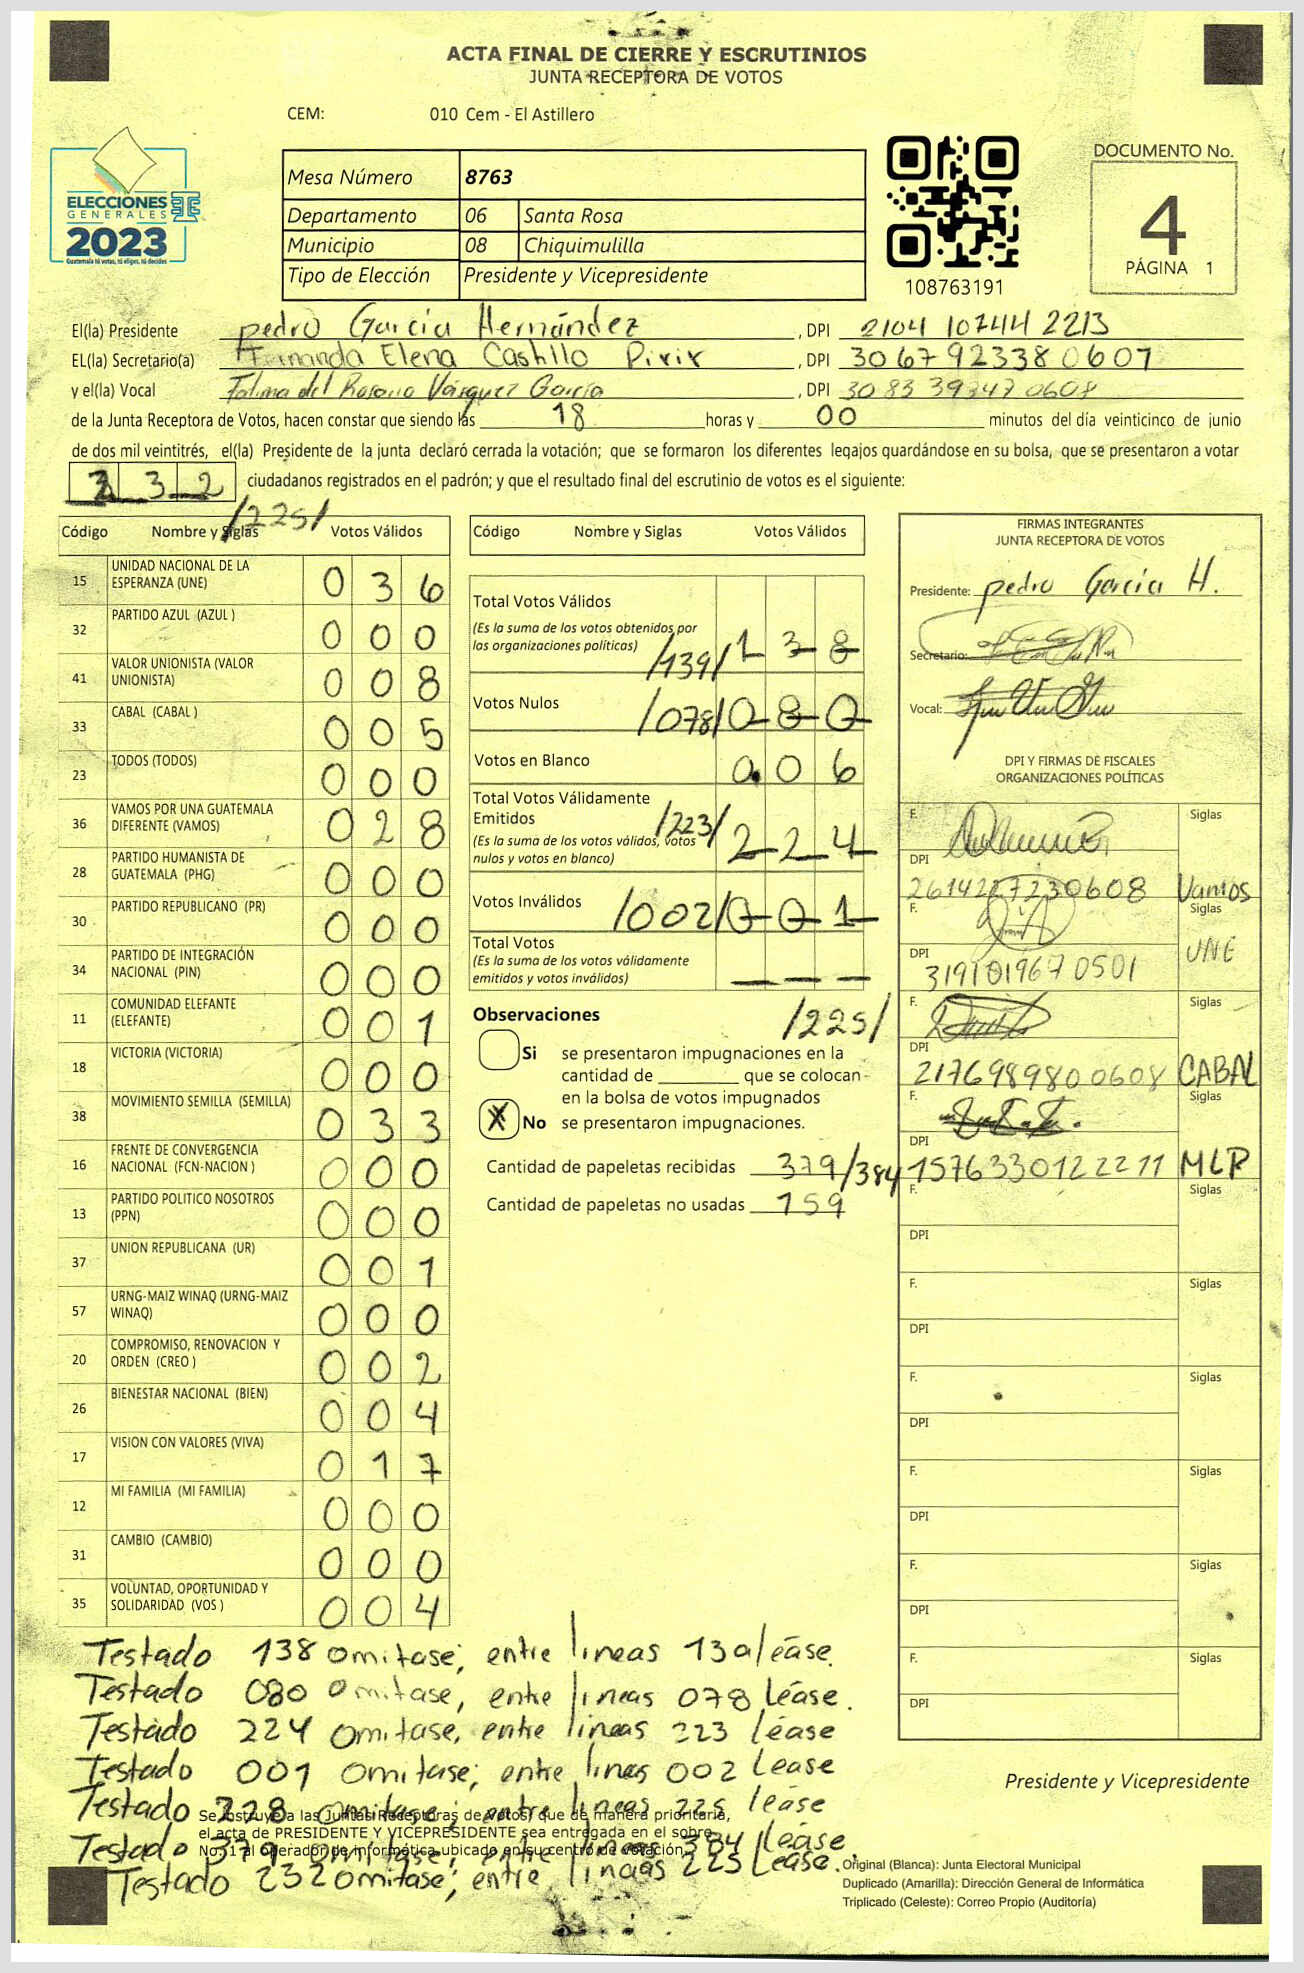 ACTA FINAL DE CIERRE Y ESCRUTINIOS
JUNTA RECEPTORA DE VOTOS
CEM: 010 Cem - El Astillero
ELECCIONES
GENERALES
2023
Guatemala tú votas, tú eliges, tú decides
Mesa Número 8763
Departamento 06 Santa Rosa
Municipio 08 Chiquimulilla
Tipo de Elección Presidente y Vicepresidente
108763191
DOCUMENTO No.
4
PÁGINA 1
El(la) Presidente pedro García Hernández, DPI 2104 10744 2213
EL(la) Secretario(a) Fernanda Elena Castillo Pirir, DPI 3067923380607
y el(la) Vocal Fatima del Rosario Vásquez García, DPI 3083 39347 0608
de la Junta Receptora de Votos, hacen constar que siendo las 18 horas y 00 minutos del día veinticinco de junio
de dos mil veintitrés, el(la) Presidente de la junta declaró cerrada la votación; que se formaron los diferentes legajos guardándose en su bolsa, que se presentaron a votar
232 ciudadanos registrados en el padrón; y que el resultado final del escrutinio de votos es el siguiente:
/225/
Código Nombre y Siglas Votos Válidos
15 UNIDAD NACIONAL DE LA ESPERANZA (UNE) 036
32 PARTIDO AZUL (AZUL ) 000
41 VALOR UNIONISTA (VALOR UNIONISTA) 008
33 CABAL (CABAL ) 005
23 TODOS (TODOS) 000
36 VAMOS POR UNA GUATEMALA DIFERENTE (VAMOS) 028
28 PARTIDO HUMANISTA DE GUATEMALA (PHG) 000
30 PARTIDO REPUBLICANO (PR) 000
34 PARTIDO DE INTEGRACIÓN NACIONAL (PIN) 000
11 COMUNIDAD ELEFANTE (ELEFANTE) 001
18 VICTORIA (VICTORIA) 000
38 MOVIMIENTO SEMILLA (SEMILLA) 033
16 FRENTE DE CONVERGENCIA NACIONAL (FCN-NACION ) 000
13 PARTIDO POLITICO NOSOTROS (PPN) 000
37 UNION REPUBLICANA (UR) 001
57 URNG-MAIZ WINAQ (URNG-MAIZ WINAQ) 000
20 COMPROMISO, RENOVACION Y ORDEN (CREO ) 002
26 BIENESTAR NACIONAL (BIEN) 004
17 VISION CON VALORES (VIVA) 017
12 MI FAMILIA (MI FAMILIA) 000
31 CAMBIO (CAMBIO) 000
35 VOLUNTAD, OPORTUNIDAD Y SOLIDARIDAD (VOS ) 004
Código Nombre y Siglas Votos Válidos
Total Votos Válidos
(Es la suma de los votos obtenidos por
las organizaciones políticas) /139/ 138
Votos Nulos /078/ 080
Votos en Blanco 006
Total Votos Válidamente
Emitidos /223/ 224
(Es la suma de los votos válidos, votos
nulos y votos en blanco)
Votos Inválidos /002/ 001
Total Votos
(Es la suma de los votos válidamente
emitidos y votos inválidos)
/225/
Observaciones
Si se presentaron impugnaciones en la
cantidad de ________ que se colocan
en la bolsa de votos impugnados
X No se presentaron impugnaciones.
Cantidad de papeletas recibidas 379/384
Cantidad de papeletas no usadas 159
FIRMAS INTEGRANTES
JUNTA RECEPTORA DE VOTOS
Presidente: pedro García H.
Secretario:
Vocal:
DPI Y FIRMAS DE FISCALES
ORGANIZACIONES POLÍTICAS
F. Siglas
DPI 2614227230608 Vamos
F. Siglas
DPI 3191019670501 UNE
F. Siglas
DPI 2176989800608 CABAL
F. Siglas
DPI 1576330122211 MLP
F. Siglas
DPI
F. Siglas
DPI
F. Siglas
DPI
F. Siglas
DPI
F. Siglas
DPI
F. Siglas
DPI
Testado 138 omitase; entre lineas 139 léase.
Testado 080 omitase, entre lineas 078 Léase.
Testado 224 omitase, entre lineas 223 léase
Testado 001 omitase; entre lineas 002 Lease
Testado 228 omitase; entre lineas 225 léase
Testado 379 omitase; entre lineas 384 léase.
Testado 232 omitase; entre lineas 225 Léase.
Se instruye a las Juntas Receptoras de Votos, que de manera prioritaria,
el acta de PRESIDENTE Y VICEPRESIDENTE sea entregada en el sobre
No. 1 al operador de informática ubicado en su centro de votación.
Presidente y Vicepresidente
Original (Blanca): Junta Electoral Municipal
Duplicado (Amarilla): Dirección General de Informática
Triplicado (Celeste): Correo Propio (Auditoría)